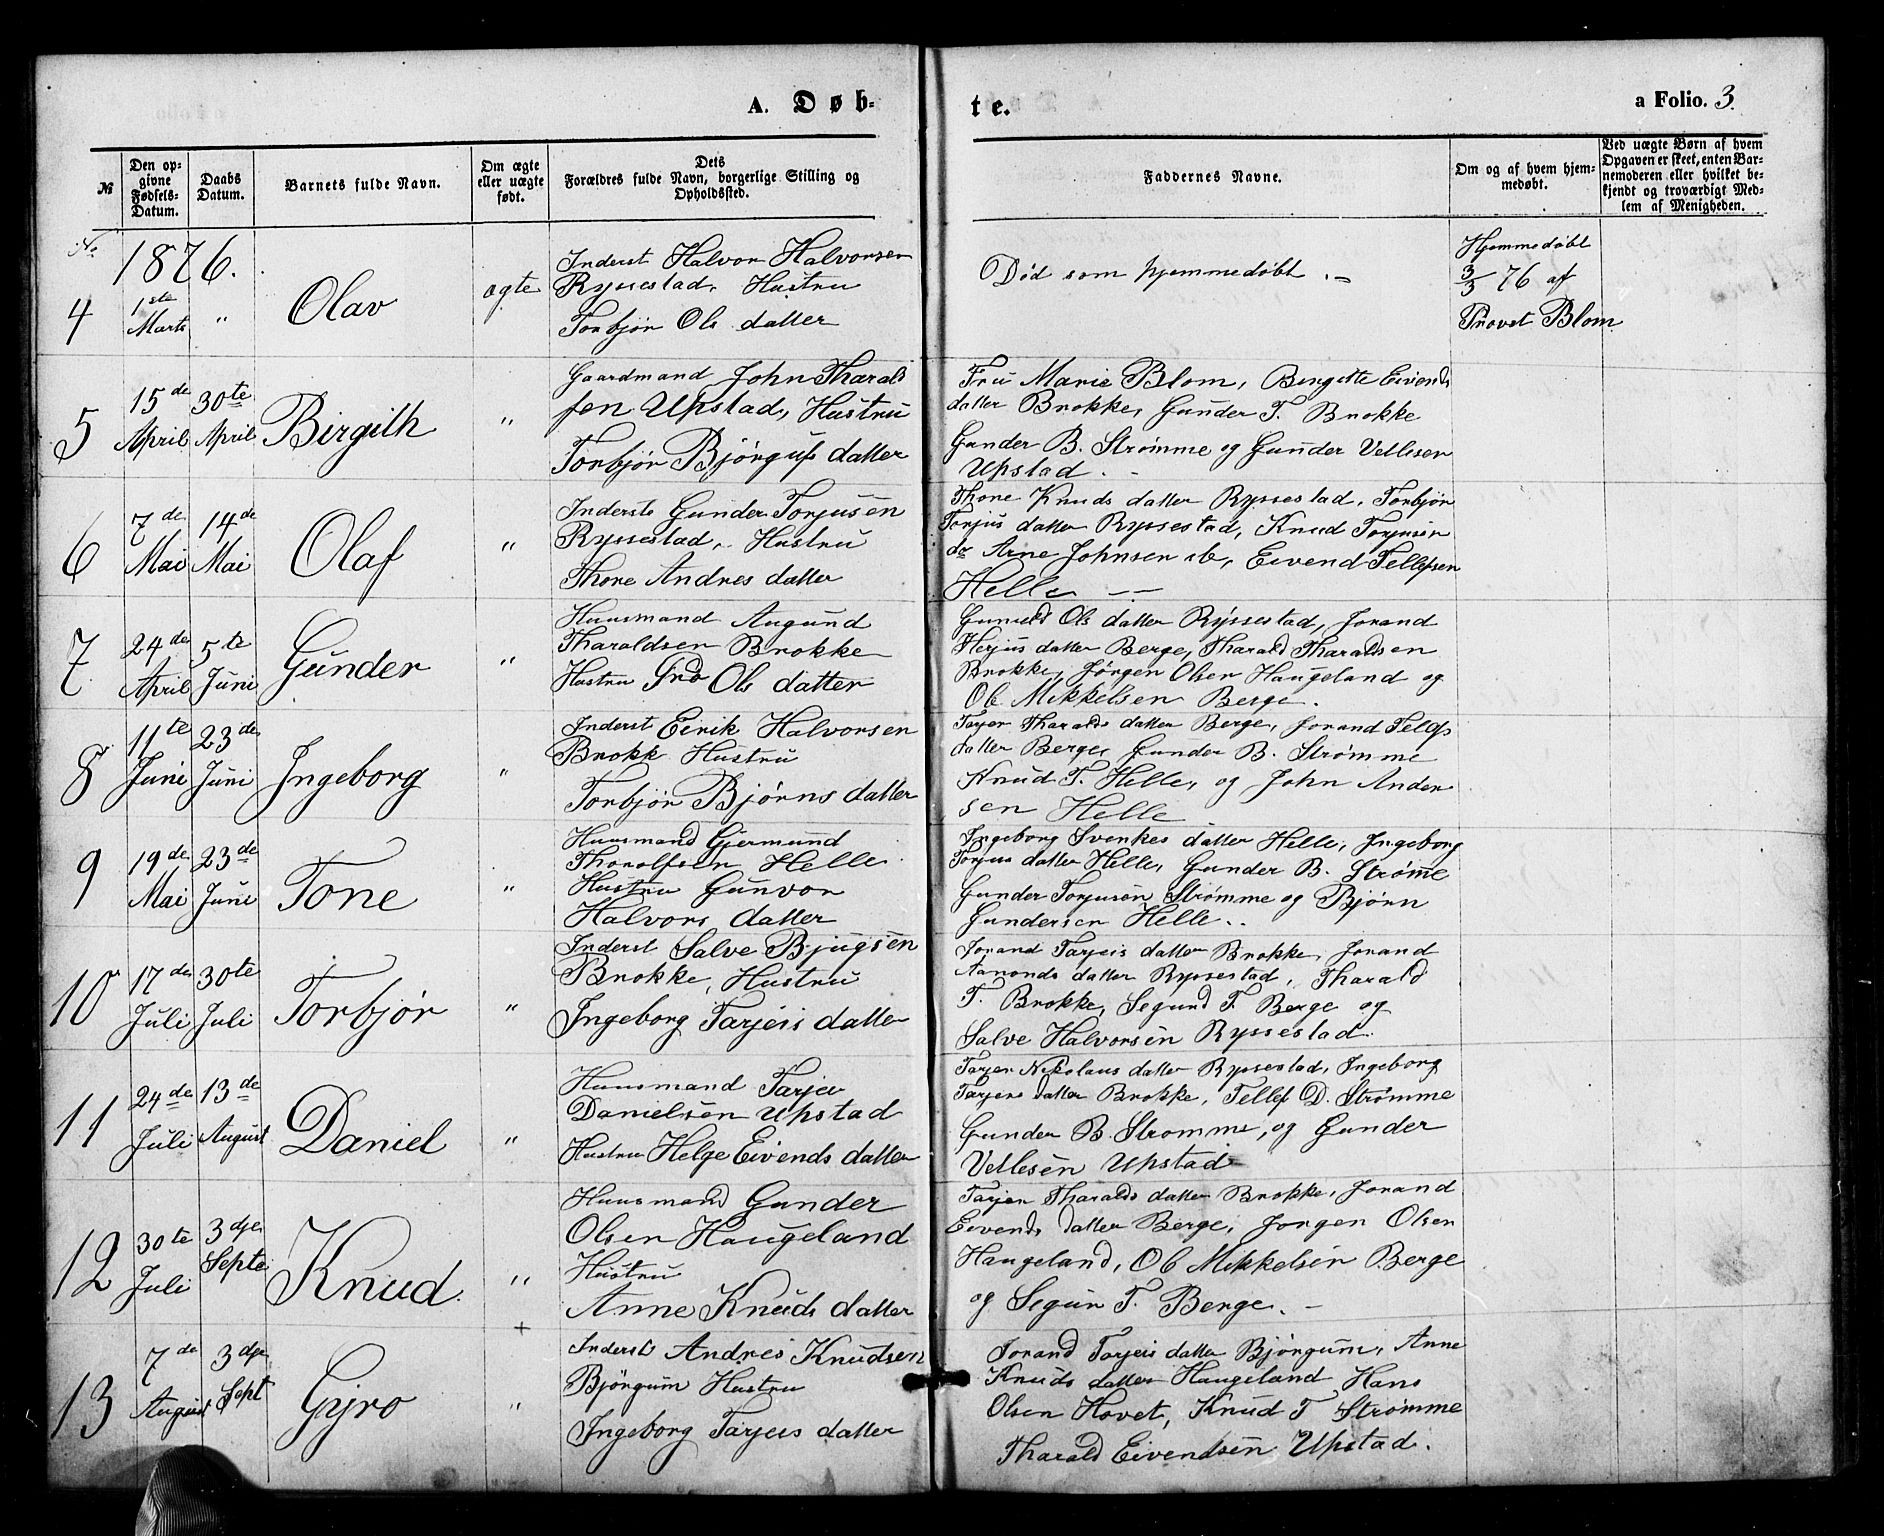 A. Døb-
te.
a Folio. 3.
№
Den op-
givne
Fødsels-
Datum.
Daabs
Datum.
Barnets fulde Navn.
Om ægte
eller uægte
født.
Dets
Forældres fulde Navn, borgerlige Stilling og
Opholdssted.
Faddernes Navne.
Om og af hvem hjem-
medøbt.
Ved uægte Børn af hvem
Opgaven er skeet, enten Bar-
nemoderen eller hvilket be-
kjendt og troværdigt Med-
lem af Menigheden.
No
1876.
4
1ste
Marts
"
Olav
ægte
Inderst Halvor Halvorsen
Ryssestad, Hustru
Torbjør Ols datter
Død som hjemmedøbt.
Hjemmedøbt
3/3 76 af
Provst Blom
5
15de
April
30te
April
Birgith
"
Gaardmand John Tharald
sen Upstad, Hustru
Torbjør Bjørgufs datter
Fru Marie Blom, Birgitte Eivends
datter Brokke, Gunder T. Brokke
Gunder B. Strømme og Gunder Vetlesen
Upstad.
6
7de
Mai
14de
Mai
Olaf
"
Inderste Gunder Torjusen
Ryssestad, Hustru
Thore Andres datter
Thone Knuds datter Ryssestad, Torbjør
Torjus datter Ryssestad, Knud Torjusen
do Arne Johnsen ib, Eivend Tellefsen
Helle
7
24de
April
5te
Juni
Gunder
"
Huusmand Augund
Tharaldsen Brokke
Hustru Gro Ols datter
Gunuld Ols datter Ryssestad, Jorand
Herjus datter Berge, Tharald Tharaldsen
Brokke, Jørgen Olsen Haugeland og
Ole Mikkelsen Berge.
8
11te
Juni
23de
Juni
Ingeborg
"
Inderst Eirik Halvorsen
Brokk Hustru
Torbjør Bjørns datter
Tarjer Tharalds datter Berge, Jorand Tellefs
datter Berge, Gunder B. Strømme
Knud T. Helle, og John Ander
sen Helle
9
19de
Mai
23de
Juni
Tone
"
Huusmand Gjermund
Thorolfsen Helle
Hustru Gunvor
Halvors datter
Ingeborg Svenkes datter Helle, Ingeborg
Torjus datter Helle, Gunder B. Strømme
Gunder Torjusen Strømme og Bjørn
Gundersen Helle.
10
17de
Juli
30te
Juli
Torbjør
"
Inderst Salve Bjugsen
Brokke, Hustru
Ingeborg Tarjeis datter
Jorand Tarjeis datter Brokke, Jorand
Aanonds datter Ryssestad, Tharald
T. Brokke, Segund T. Berge og
Salve Halvorsen Ryssestad.
11
24de
Juli
13de
August
Daniel
"
Huusmand Tarjei
Danielsen Upstad
Hustru Helge Eivends datter
Tarjer Nikolaus datter Ryssestad, Ingeborg
Tarjers datter Brokke, Tellef D. Strømme
Gunder B. Strømme, og Gunder
Vetlesen Upstad
12
30te
Juli
3dje
Septe
Knud.
"
Huusmand Gunder
Olsen Haugeland
Hustru
Anne Knuds datter
Tarjer Tharalds datter Brokke, Jorand
Eivends datter Berge, Jorgen Olsen
Haugeland, Ole Mikkelsen Berge
og Segur T. Berge.
13
7de
August
3dje
Sept
Gyro
+
"
Inderst Andres Knudsen
Bjørgum Hustru
Ingeborg Tarjeis datter
Jorand Tarjeis datter Bjørgum, Anne
Knuds datter Haugeland Hans
Olsen Hovet, Knud T Strømme
Tharald Eivendsen Upstad.